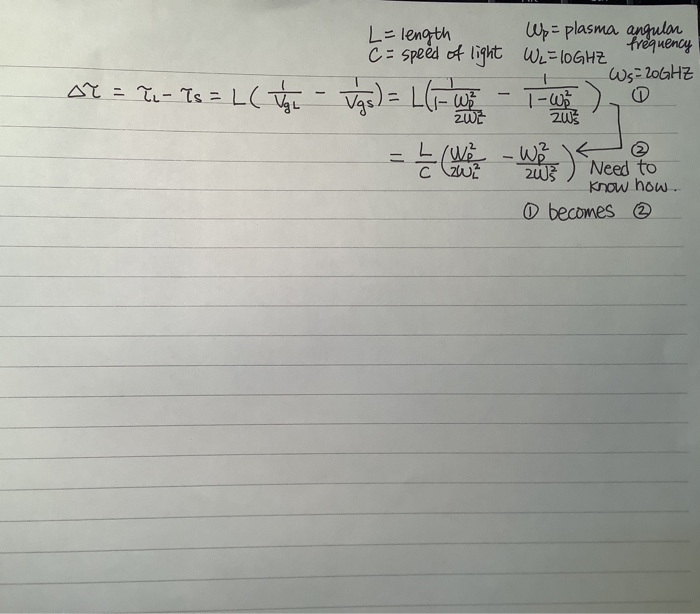 L = length
C = speed of light
Wp = plasma angular frequency
WL = 10GHZ
Ws = 20GHZ
Δτ = τL - τs = L( 1/VgL - 1/Vgs ) = L( 1/(1 - ωp²/2ωL²) - 1/(1 - ωp²/2ωs²) ) ①
= L/C ( Wp²/2WL² - Wp²/2Ws² ) ②
Need to
know how.
① becomes ②